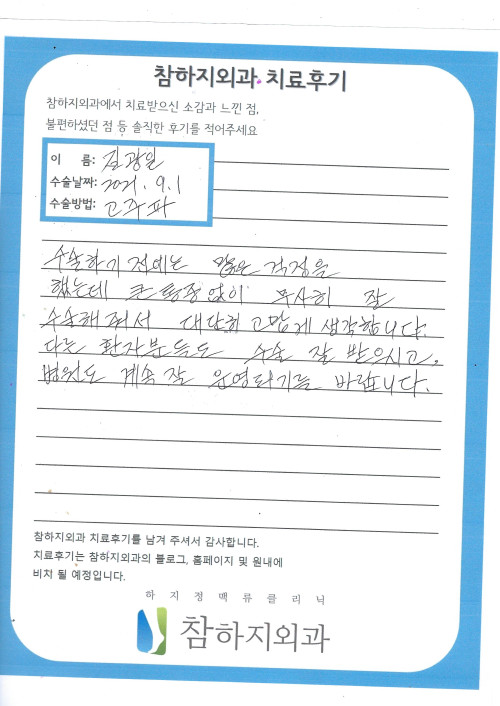 참하지외과 치료후기
참하지외과에서 치료받으신 소감과 느낀 점,
불편하셨던 점 등 솔직한 후기를 적어주세요
이 름: 길광일
수술날짜: 2021. 9. 1
수술방법: 고주파
수술하기 전에는 많은 걱정을
했는데 큰 통증없이 무사히 잘
수술해줘서 대단히 고맙게 생각합니다.
다른 환자분들도 수술 잘 받으시고,
병원도 계속 잘 운영되기를 바랍니다.
참하지외과 치료후기를 남겨 주셔서 감사합니다.
치료후기는 참하지외과의 블로그, 홈페이지 및 원내에
비치 될 예정입니다.
하지정맥류클리닉
참하지외과